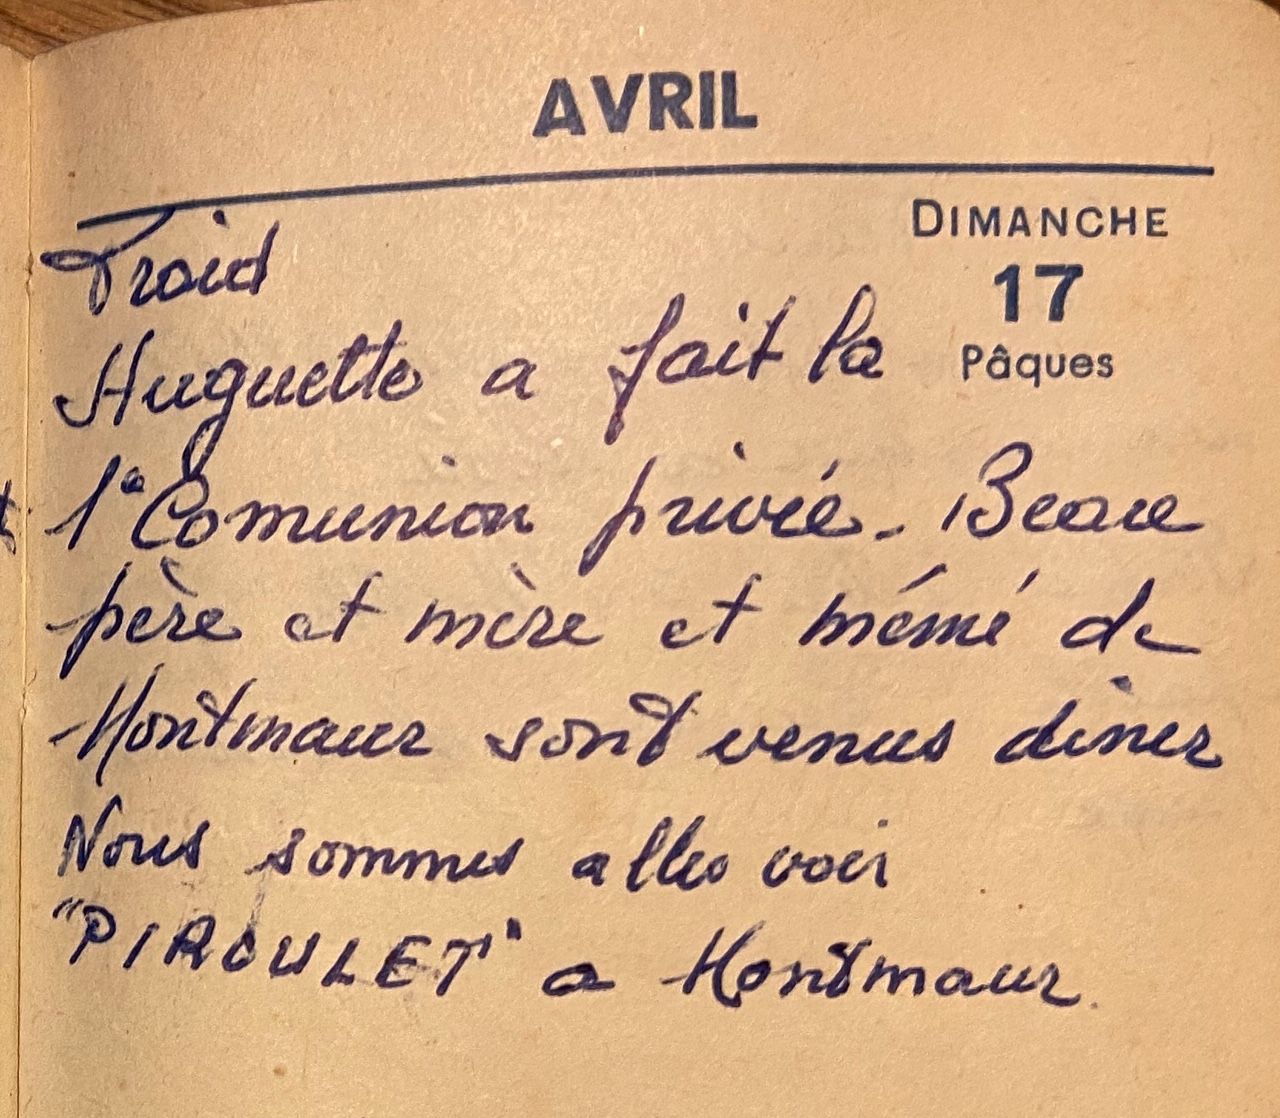 AVRIL
DIMANCHE
17
Pâques
Froid
Huguette a fait la
1e Comunion privée. Beau
père et mère et mémé de
Montmaur sont venus diner
Nous sommes alles voir
"PIROULET" a Montmaur.